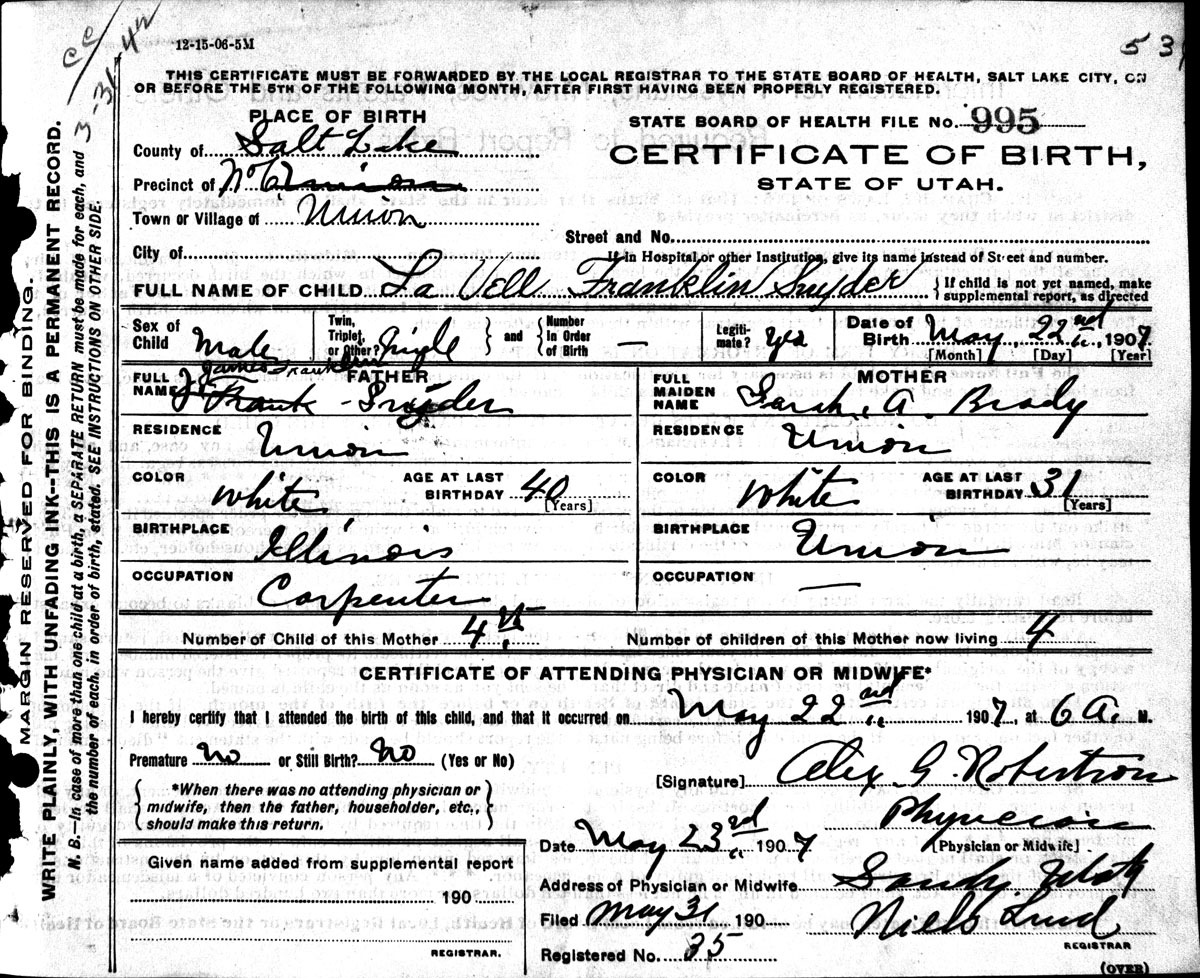 cc
3-31-42
12-15-06-5M
53
THIS CERTIFICATE MUST BE FORWARDED BY THE LOCAL REGISTRAR TO THE STATE BOARD OF HEALTH, SALT LAKE CITY, ON
OR BEFORE THE 5TH OF THE FOLLOWING MONTH, AFTER FIRST HAVING BEEN PROPERLY REGISTERED.
PLACE OF BIRTH
County of Salt Lake
Precinct of Union
Town or Village of Union
City of
STATE BOARD OF HEALTH FILE No. 995
CERTIFICATE OF BIRTH,
STATE OF UTAH.
Street and No.
If in Hospital or other Institution, give its name instead of Street and number.
FULL NAME OF CHILD La Vell Franklin Snyder { If child is not yet named, make
supplemental report, as directed
Sex of Child Male
Twin, Triplet, or Other? Single } and { Number In Order of Birth —
Legiti-mate? Yes
Date of Birth May 22nd, 1907
[Month] [Day] [Year]
FATHER
FULL NAME James Franklin
J. Frank Snyder
RESIDENCE Union
COLOR White AGE AT LAST BIRTHDAY 40 [Years]
BIRTHPLACE Illinois
OCCUPATION Carpenter
MOTHER
FULL MAIDEN NAME Sarah A. Brady
RESIDENCE Union
COLOR White AGE AT LAST BIRTHDAY 31 [Years]
BIRTHPLACE Union
OCCUPATION —
Number of Child of this Mother 4th Number of children of this Mother now living 4
CERTIFICATE OF ATTENDING PHYSICIAN OR MIDWIFE*
I hereby certify that I attended the birth of this child, and that it occurred on May 22nd 1907, at 6 A. M.
Premature No or Still Birth? No (Yes or No)
{ *When there was no attending physician or
midwife, then the father, householder, etc.,
should make this return. }
Given name added from supplemental report
190
REGISTRAR.
[Signature] Alex. G. Robertson
Physician
[Physician or Midwife]
Date May 23rd 1907
Address of Physician or Midwife Sandy. Utah
Filed May 31 190 Niels Lind
REGISTRAR
Registered No. 35
(OVER)
MARGIN RESERVED FOR BINDING.
WRITE PLAINLY, WITH UNFADING INK--THIS IS A PERMANENT RECORD.
N. B.—In case of more than one child at a birth, a SEPARATE RETURN must be made for each, and
the number of each, in order of birth, stated. SEE INSTRUCTIONS ON OTHER SIDE.